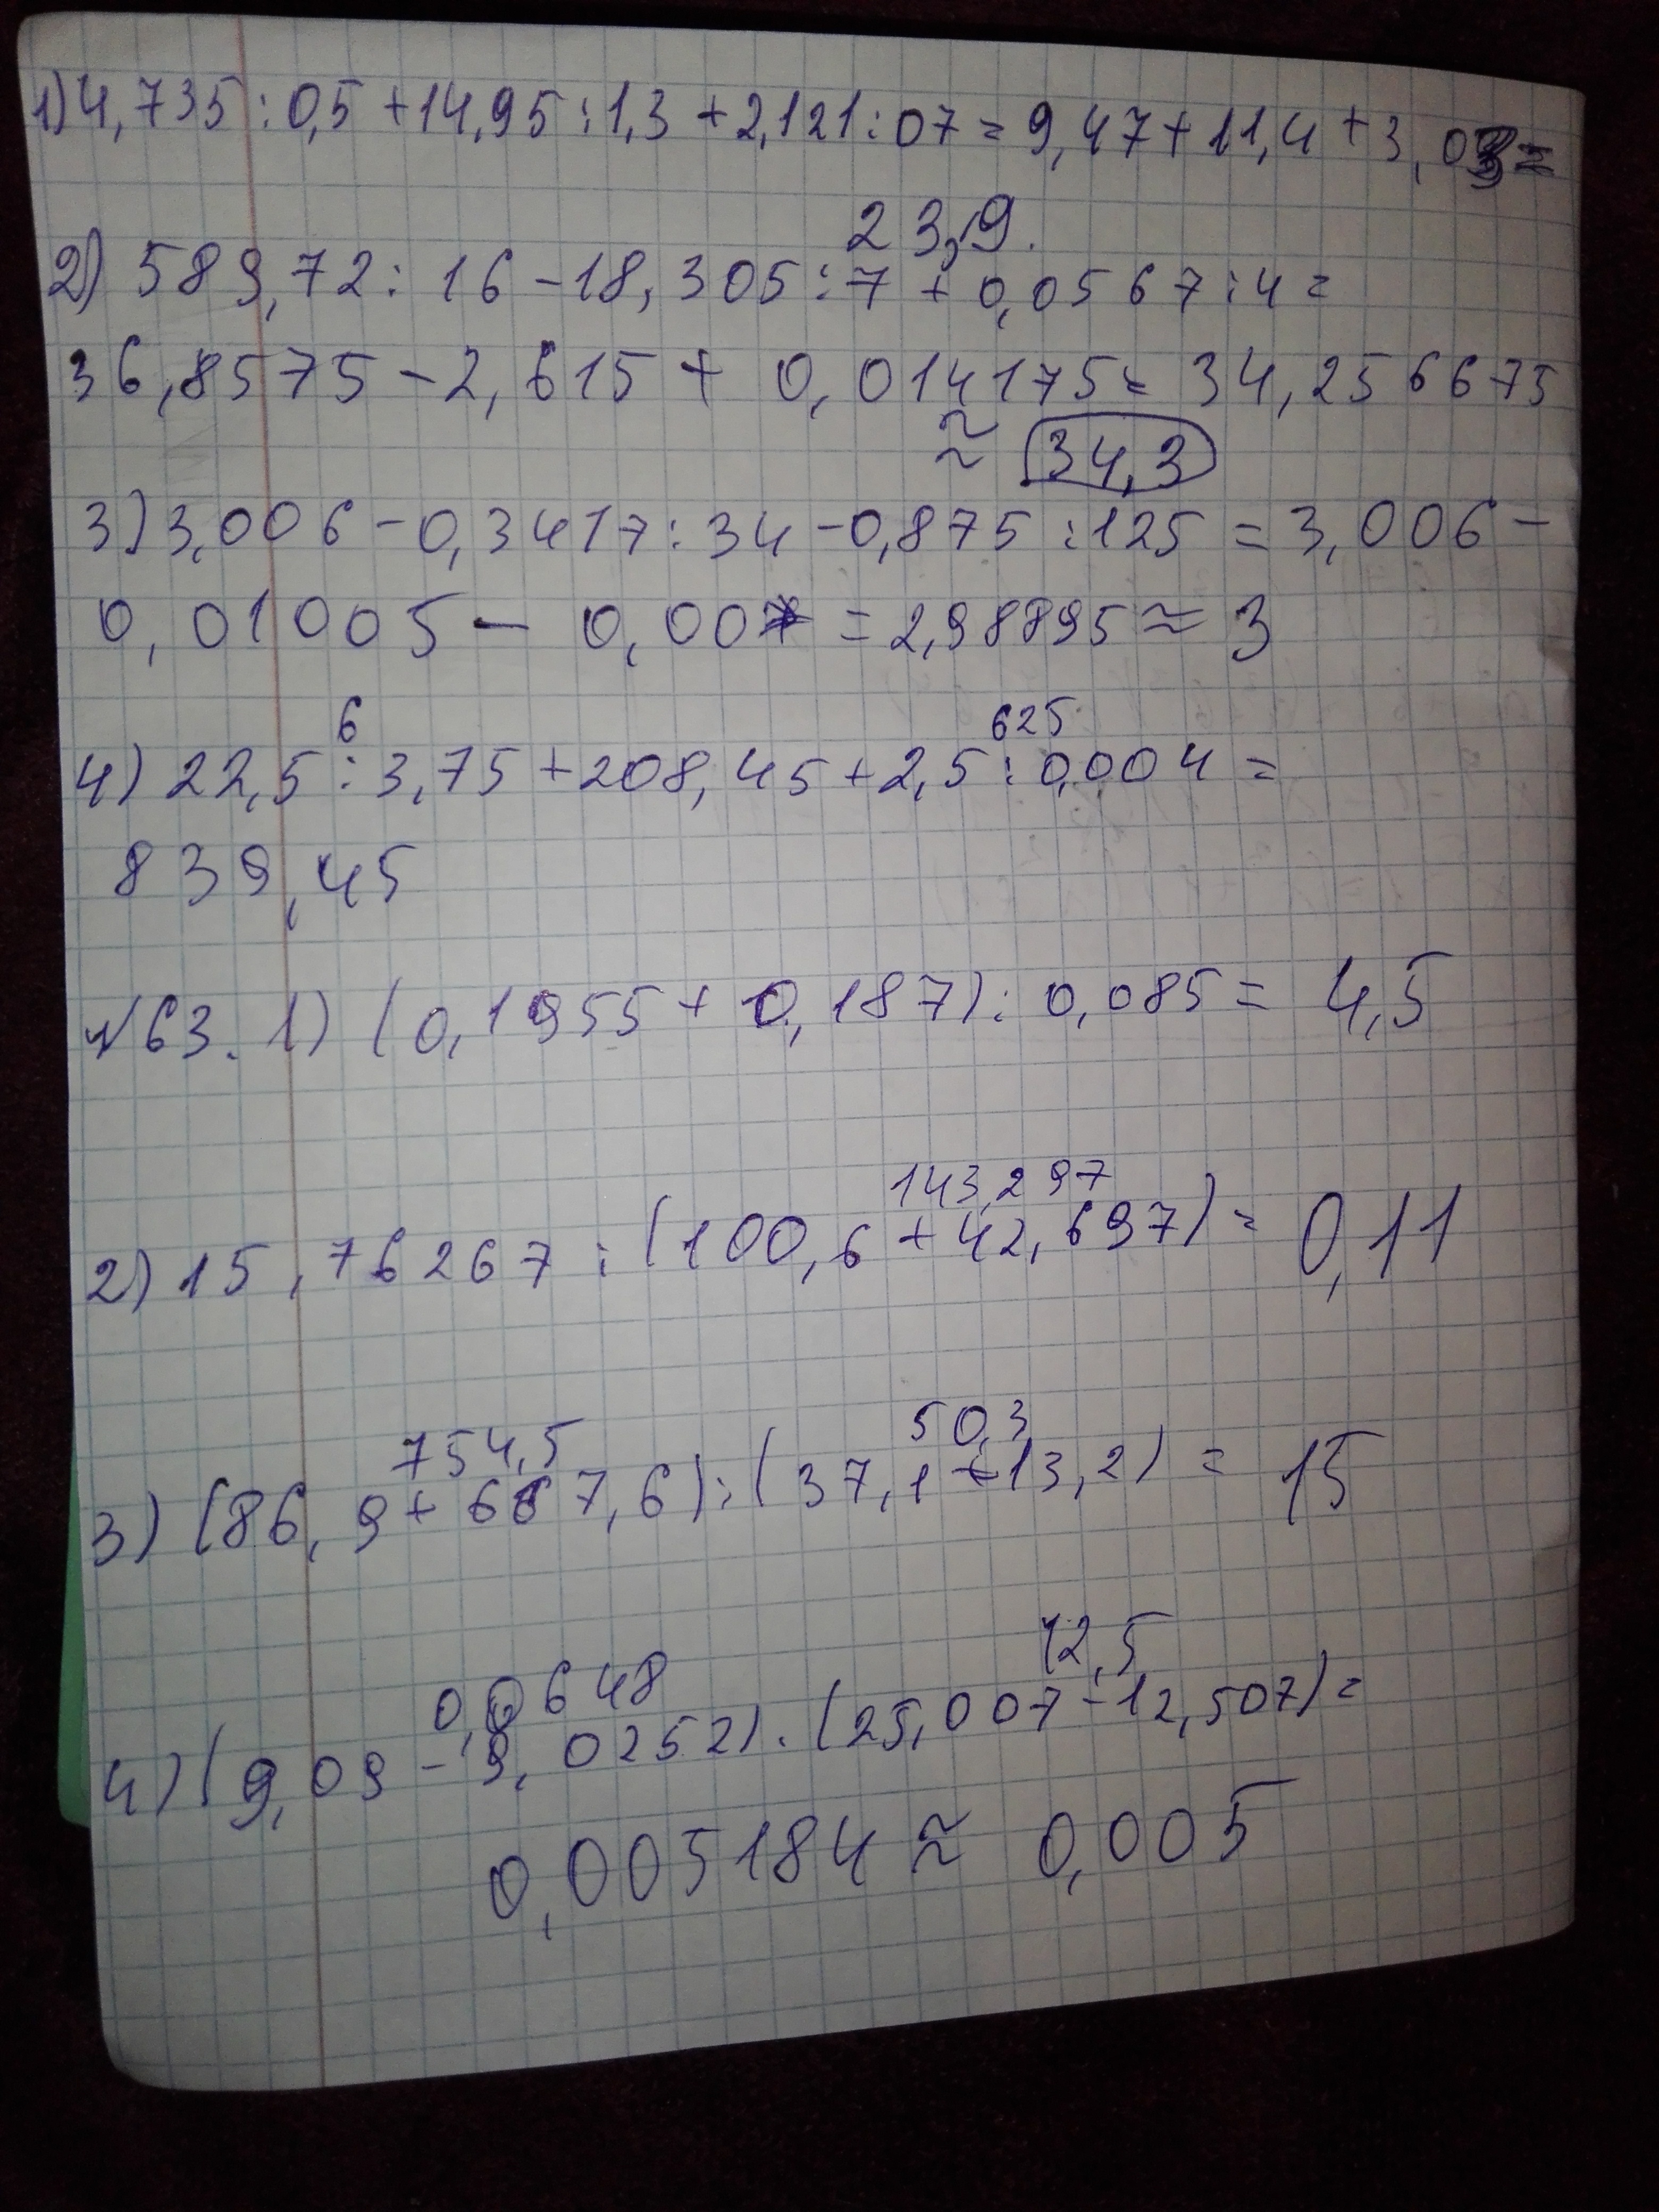 1) 4,735 : 0,5 + 14,95 : 1,3 + 2,121 : 07 = 9,47 + 11,4 + 3,03 =
23,9.
2) 589,72 : 16 - 18,305 : 7 + 0,0567 : 4 =
36,8575 - 2,615 + 0,014175 = 34,256675
≈ 34,3
3) 3,006 - 0,3417 : 34 - 0,875 : 125 = 3,006 -
0,01005 - 0,007 = 2,98895 ≈ 3
6 625
4) 22,5 : 3,75 + 208,45 + 2,5 : 0,004 =
839,45
№63. 1) (0,1955 + 0,187) : 0,085 = 4,5
143,297
2) 15,76267 : (100,6 + 42,697) = 0,11
754,5 50,3
3) (86,9 + 667,6) : (37,1 + 13,2) = 15
0,0648 12,5
4) (9,09 - 9,0252) . (25,007 - 12,507) =
0,005184 ≈ 0,005